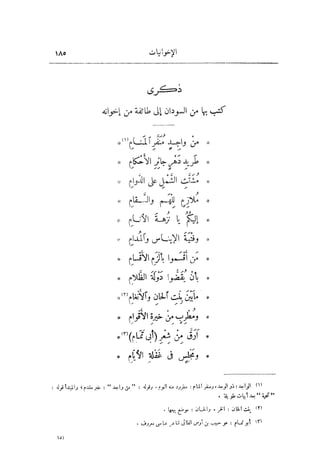 الإخوانيات ١٨٥
ذكرى
كتب بها من السودان إلى طائفة من إخوانه
* مِنْ واجِدٍ مُنَفَّرِ المَنَامِ(١) *
* طَرِيدِ دَهْرٍ جائِرِ الأَحْكامِ *
* مُشَتَّتِ الشَّمْلِ على الدَّوامِ *
* مُلازِمٍ لِلْهَمِّ والسَّقامِ *
* إِلَيْكُمُ يا نُزْهَةَ الأَنامِ *
* وفِتْيَةَ الإِيناسِ والمُدامِ *
* مَن أَقْسَموا بأَلْزَمِ الأَقْسامِ *
* بأَنْ يُقَضُّوا دَوْلَةَ الظَّلامِ *
* مابَيْنَ بِنْتِ الحَانِ والأَنْغامِ(٢) *
* ومُطْرِبٍ مِنْ خِيرَةِ الأَقْوامِ *
* أَرَقَّ مِنْ شِعْرِ (أَبى تَمَّامِ)(٣) *
* ومَجْلِسٍ فى غَفْلَةِ الأَيَّامِ *
(١) الواجد : ذو الوجد . ومنفر المنام : مطرود عنه النوم . وقوله : "من واجد" : خبر مقدم، والمبتدأ قوله :
"تحية" بعد أبيات طويلة .
(٢) بنت الحان : الخمر . والحان : موضع بيعها .
(٣) أبو تمام : هو حبيب بن أوس الطائى شاعر عباسى معروف .